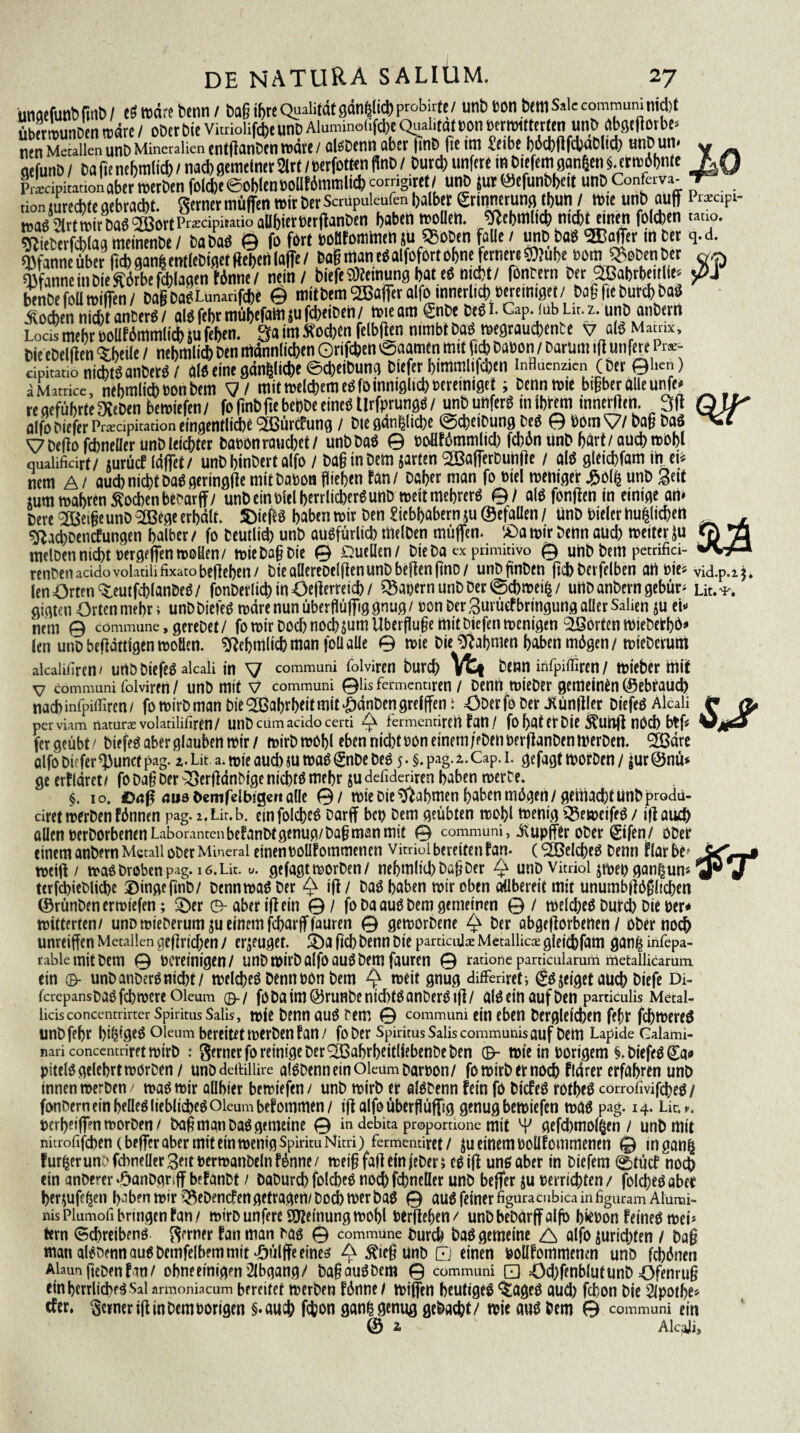 DE NATURA SALIUM. 27
ungesund sind / es wäre denn / daß ihre Qualität gäntzlich probirte / und von dem Sale communi nicht
überwunden wäre / oder die Vitriolische und Aluminosische Qualität von verwitterten und abgestorbe-
nen Metallen und Mineralien entstanden wäre / alsdenn aber sind sie im Leibe höchstschädlich und un-
gesund / da sie nehmlich / nach gemeiner Art / versotten sind / durch unsere in diesem gantzen §. erwöhnte
Præcipitation aber werden solche Sohlen vollkömmlich corrigiret / und zur Gesundheit und Conserva-
tion zurechte gebracht. Ferner müssen wir der Scrupuleusen halber Erinnerung thun / wie und auff
was Art wir das Wort Præcipitatio allhier verstanden haben wollen. Nehmlich nicht einen solchen
Niederschlag meinende / da das ⊖ so fort vollkommen zu Boden falle / und das Wasser in der
Pfanne über sich gantz entlediget stehen lasse / daß man es alsofort ohne fernere Mühe vom Boden der
Pfanne in die Körbe schlagen könne / nein / diese Meinung hat es nicht / sondern der Wahrheitlie-
bende soll wissen / daß das Lunarische ⊖ mit dem Wasser also innerlich vereiniget / daß sie durch das
Kochen nicht anders / als sehr mühesam zu scheiden / wie am Ende des I. Cap. sub Lit. z. und andern
Locis mehr vollkömmlich zu sehen. Da im Kochen selbsten nimbt das wegrauchende ▽ als Matrix,
die edelsten Theile / nehmlich den männlichen Orischen Saamen mit sich davon / darum ist unsere Præ-
cipitatio nichts anders / als eine gäntzliche Scheidung dieser himmlischen Influenzien (der ⊖lien)
à Matrice, nehmlich von dem ▽ / mit welchem es so inniglich vereiniget ; denn wie bißher alle unse-
re geführte Reden bewiesen / so sind sie beyde eines Ursprungs / und unsers in ihrem innersten. Ist
also dieser Præcipitation eingentliche Würckung / die gäntzliche Scheidung des ⊖ vom ▽ / daß das
▽ desto schneller und leichter davon rauchet / und das ⊖ vollkömmlich schön und hart / auch wohl
qualificirt / zurück lässet / und hindert also / daß in dem zarten Wasserdunste / als gleichsam in ei-
nem △ / auch nicht das geringste mit davon fliehen kan / daher man so viel weniger Holtz und Zeit
zum wahren Kochen bedarff / und ein viel herrlichers und weit mehrers ⊖ / als sonsten in einige an-
dere Weise und Wege erhält. Diests haben wir den Liebhabern zu Gefallen / und vieler nutzlichen
Nachdenckungen halber / so deutlich und ausfürlich melden müssen. Da wir denn auch weiter zu
melden nicht vergessen wollen / wie daß die ⊖ Quellen / die da ex primitivo ⊖ und dem petrifici-
renden acido volatili fixato bestehen / die alleredelsten und besten sind / und finden sich derselben an vie-
len Orten Teutschlandes / sonderlich in Oesterreich / Bayern und der Schweitz / und andern gebür-
gigten Orten mehr ; und dieses wäre nun überflüssig gnug / von der Zurückbringung aller Salien zu ei-
nem ⊖ commune, geredet / so wir doch noch zum Uberfluße mit diesen wenigen Worten wiederhö-
len und bestättigen wollen. Nehmlich man soll alle ⊖ wie die Nahmen haben mögen / wiederum
alcalisiren / und dieses alcali in ▽ communi solviren durch denn inspissiren / wieder mit
▽ communi solviren / und mit ▽ communi ⊖lis fermentiren / denn wieder gemeinen Gebrauch
nach inspissiren / so wird man die Wahrheit mit Händen greiffen : Oder so der Künstler dieses Alcali
per viam naturæ volatilisiren / und cum acido certi fermentiren kan / so hat er die Kunst noch bes-
ser geübt / dieses aber glauben wir / wird wohl eben nicht von einem jeden verstanden werden. Wäre
also dieser Punct pag. 2. Lit. a. wie auch zu was Ende des 5. §. pag. 2. Cap. I. gesagt worden / zur Gnü-
ge erkläret / so daß der Verständige nichts mehr zu desideriren haben werde.
§. 10. Daß aus demselbigen alle ⊖ / wie die Nahmen haben mögen / gemacht und produ-
ciret werden können pag. 2. Lit. b. ein solches darff bey dem geübten wohl wenig Beweises / ist auch
allen verdorbenen Laboranten bekandt genug / daß man mit ⊖ communi, Kupffer oder Eisen / oder
einem andern Metall oder Mineral einen vollkommenen Vitriol bereiten kan. (Welches denn klar be-
weist / was droben pag. 16. Lit. v. gesagt worden / nehmlich daß der und Vitriol zwey gantz un-
terschiedliche Dinge sind / denn was der ist / das haben wir oben allbereit mit unumbstößlichen
Gründen erwiesen ; Der aber ist ein ⊖ / so da aus dem gemeinen ⊖ / welches durch die ver-
witterten / und wiederum zu einem scharff sauren ⊖ gewordene der abgestorbenen / oder noch
unreiffen Metallen gestrichen / erzeuget. Da sich denn die particulæ Metallicæ gleichsam gantz insepa-
rable mit dem ⊖ vereinigen / und wird also aus dem sauren ⊖ ratione particularum metallicarum
ein und anders nicht / welches denn von dem weit gnug differiret ; Es zeiget auch diese Di-
screpans das schwere Oleum / so da im Grunde nichts anders ist / als ein auf den particulis Metal-
licis concentrirter Spiritus Salis, wie denn aus dem ⊖ communi ein eben dergleichen sehr schweres
und sehr hitziges Oleum bereitet werden kan / so der Spiritus Salis communis auf dem Lapide Calami-
nari concentriret wird : Ferner so reinige der Wahrheitliebende den wie in vorigem §. dieses Ca-
pitels gelehrt worden / und destillire alsdenn ein Oleum darvon / so wird er noch klärer erfahren und
innen werden / was wir allhier bewiesen / und wird er alsdenn kein so dickes rothes corrosivisches /
sondern ein helles liebliches Oleum bekommen / ist also überflüssig genug bewiesen was pag. 14. Lit.
verheissen worden / daß man das gemeine ⊖ in debita proportione mit geschmoltzen / und mit
nitrosischen (besser aber mit ein wenig Spiritu Nitri) fermentiret / zu einem vollkommenen in gantz
kurtzer und schneller Zeit verwandeln könne / weiß fast ein jeder ; es ist uns aber in diesem Stück noch
ein anderer Handgriff bekandt / dadurch solches noch schneller und besser zu verrichten / solches aber
herzusetzen haben wir Bedencken getragen / doch wer das ⊖ aus seiner figura cubica in figuram Alumi-
nis Plumosi bringen kan / wird unsere Meinung wohl verstehen / und bedarff also hievon keines wei-
tern Schreibens. Ferner kan man das ⊖ commune durch das gemeine △ also zurichten / daß
man alsdenn aus demselbem mit Hülffe eines Kieß und einen vollkommenen und schönen
Alaun sieden kan / ohne einigen Abgang / daß aus dem ⊖ communi Ochsenblut und Ofenruß
ein herrliches Sal armoniacum bereitet werden könne / wissen heutiges Tages auch schon die Apothe-
cker. Ferner ist in dem vorigen §. auch schon gantz genug gedacht / wie aus dem ⊖ communi ein
G 2 Alcali,
Præcipi-
tatio.
q. d.
vid. p. 23.